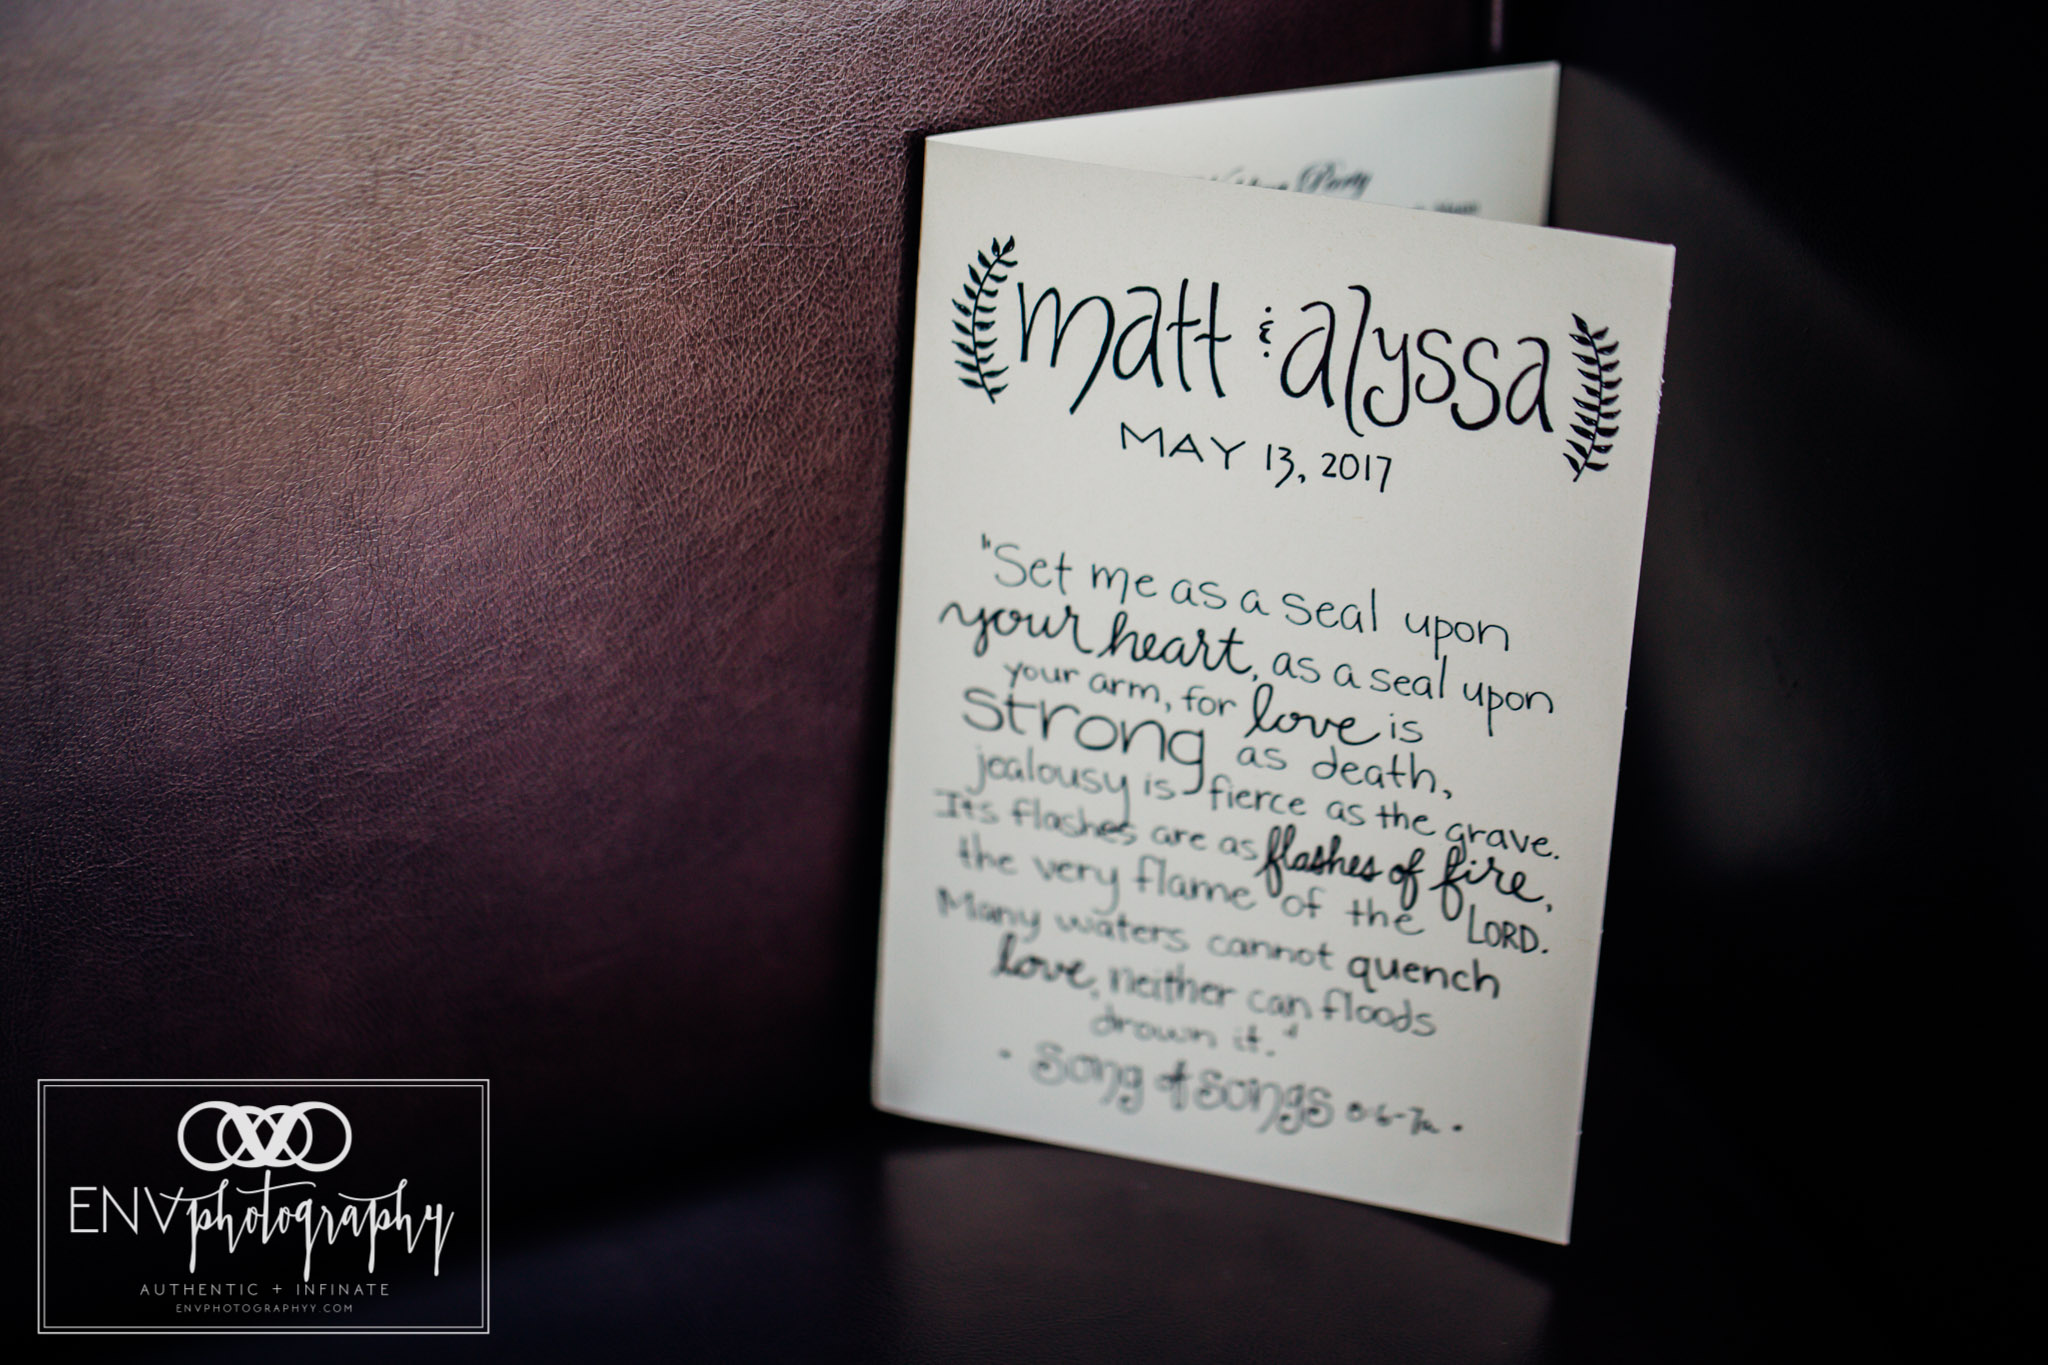 Wedding Party
matt & alyssa
MAY 13, 2017
"Set me as a seal upon
your heart, as a seal upon
your arm, for love is
strong as death,
jealousy is fierce as the grave.
Its flashes are as flashes of fire,
the very flame of the LORD.
Many waters cannot quench
love, neither can floods
drown it."
- Song of Songs 8:6-7a -
ENVphotography
AUTHENTIC + INFINATE
ENVPHOTOGRAPHYY.COM